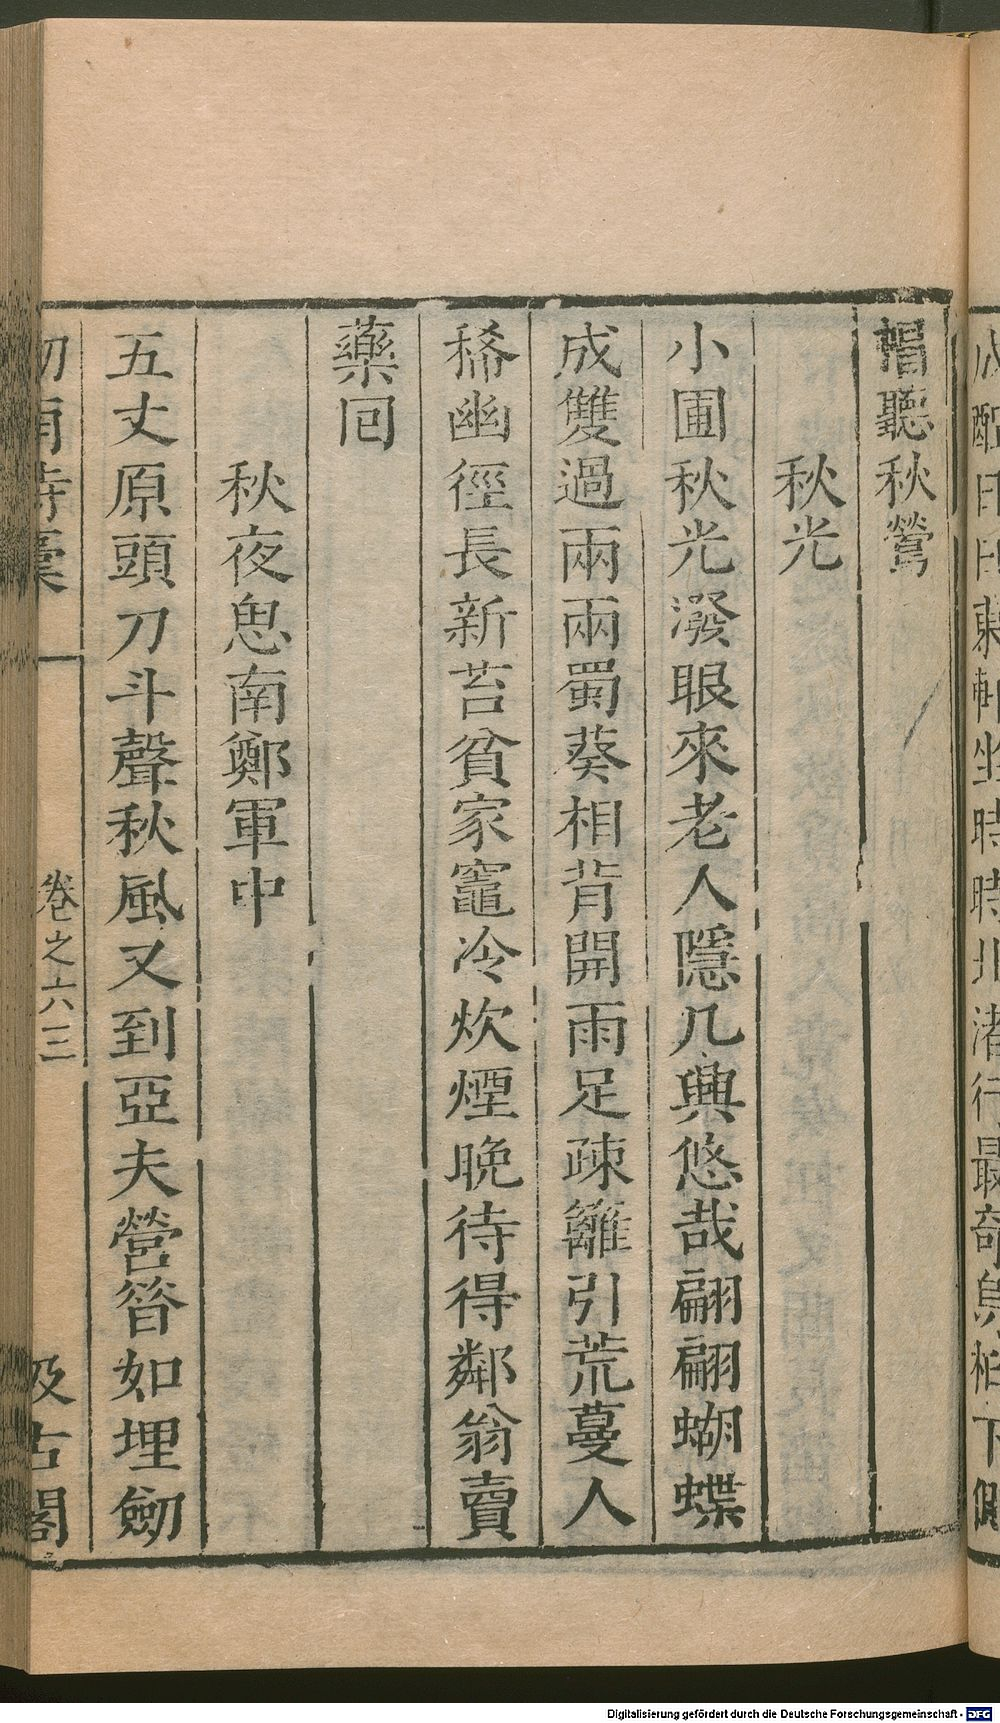 帽聽秋鶯
秋光
小圃秋光潑眼來老人隱几興悠哉翩翩蝴蝶
成雙過兩兩蜀葵相背開雨足疎籬引荒蔓人
稀幽徑長新苔貧家竈冷炊煙晚待得鄰翁賣
藥囘
秋夜思南鄭軍中
五丈原頭刀斗聲秋風又到亞夫營昝如埋劒
卷之六三
汲古閣
Digitalisierung gefördert durch die Deutsche Forschungsgemeinschaft - DFG